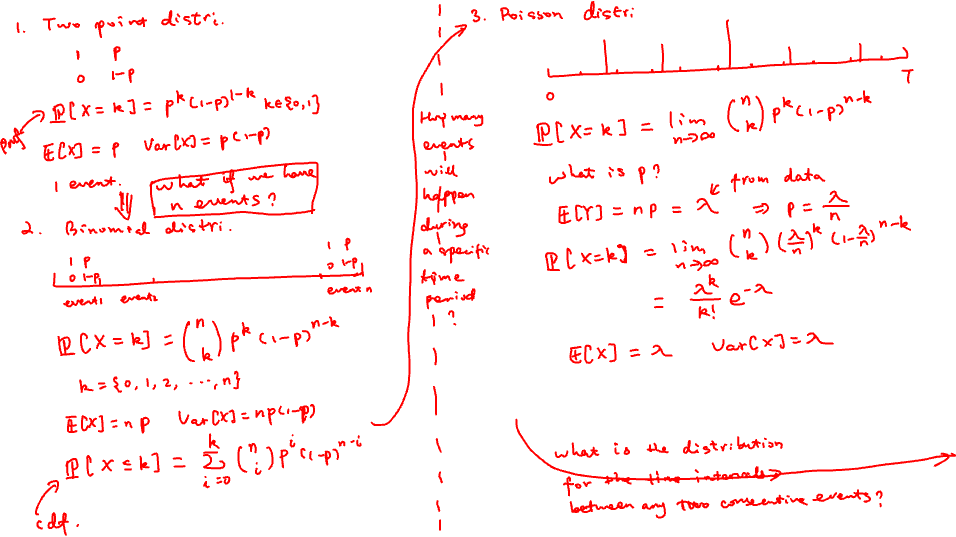 1. Two point distri.
1 p
0 1-p
pmf
P[X=k] = p^k (1-p)^{1-k} k∈{0,1}
E[X] = p Var[X] = p(1-p)
1 event.
what if we have
n events?
2. Binomial distri.
1 p
0 1-p
1 p
0 1-p
event1 event2 event n
P[X=k] = (n k) p^k (1-p)^{n-k}
k = {0, 1, 2, ..., n}
E[X] = np Var[X] = np(1-p)
P[X≤k] = Σ_{i=0}^{k} (n i) p^i (1-p)^{n-i}
cdf.
How many
events
will
happen
during
a specific
time
period
?
3. Poisson distri
0 T
P[X=k] = lim_{n→∞} (n k) p^k (1-p)^{n-k}
what is p?
from data
E[Y] = np = λ ⇒ p = λ/n
P[X=k] = lim_{n→∞} (n k) (λ/n)^k (1-λ/n)^{n-k}
= λ^k/k! e^{-λ}
E[X] = λ Var[X] = λ
what is the distribution
for the time intervals
between any two consecutive events?